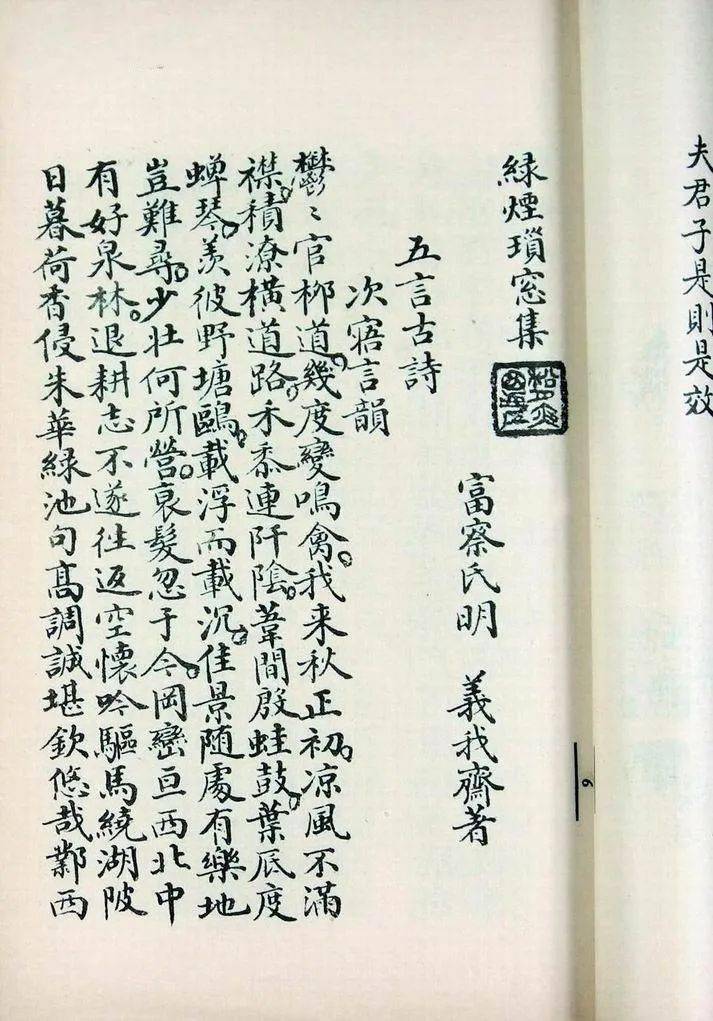 夫君子是則是效
綠煙瑣窓集
富察氏明 義我齋著
五言古詩
次寤言韻
鬱〻官柳道。幾度變鳴禽。我来秋正初。凉風不滿
襟。積潦橫道路。禾黍連阡陰。葦間殷蛙鼓。葉底度
蟬琴。羨彼野塘鷗。載浮而載沉。佳景随處有樂地
豈難尋。少壯何所營。衰髮忽于今。岡巒亘西北中
有好泉林。退耕志不遂徃返空懷吟驅馬繞湖陂
日暮荷香侵朱華綠池句髙調誠堪欽悠哉鄴西
6